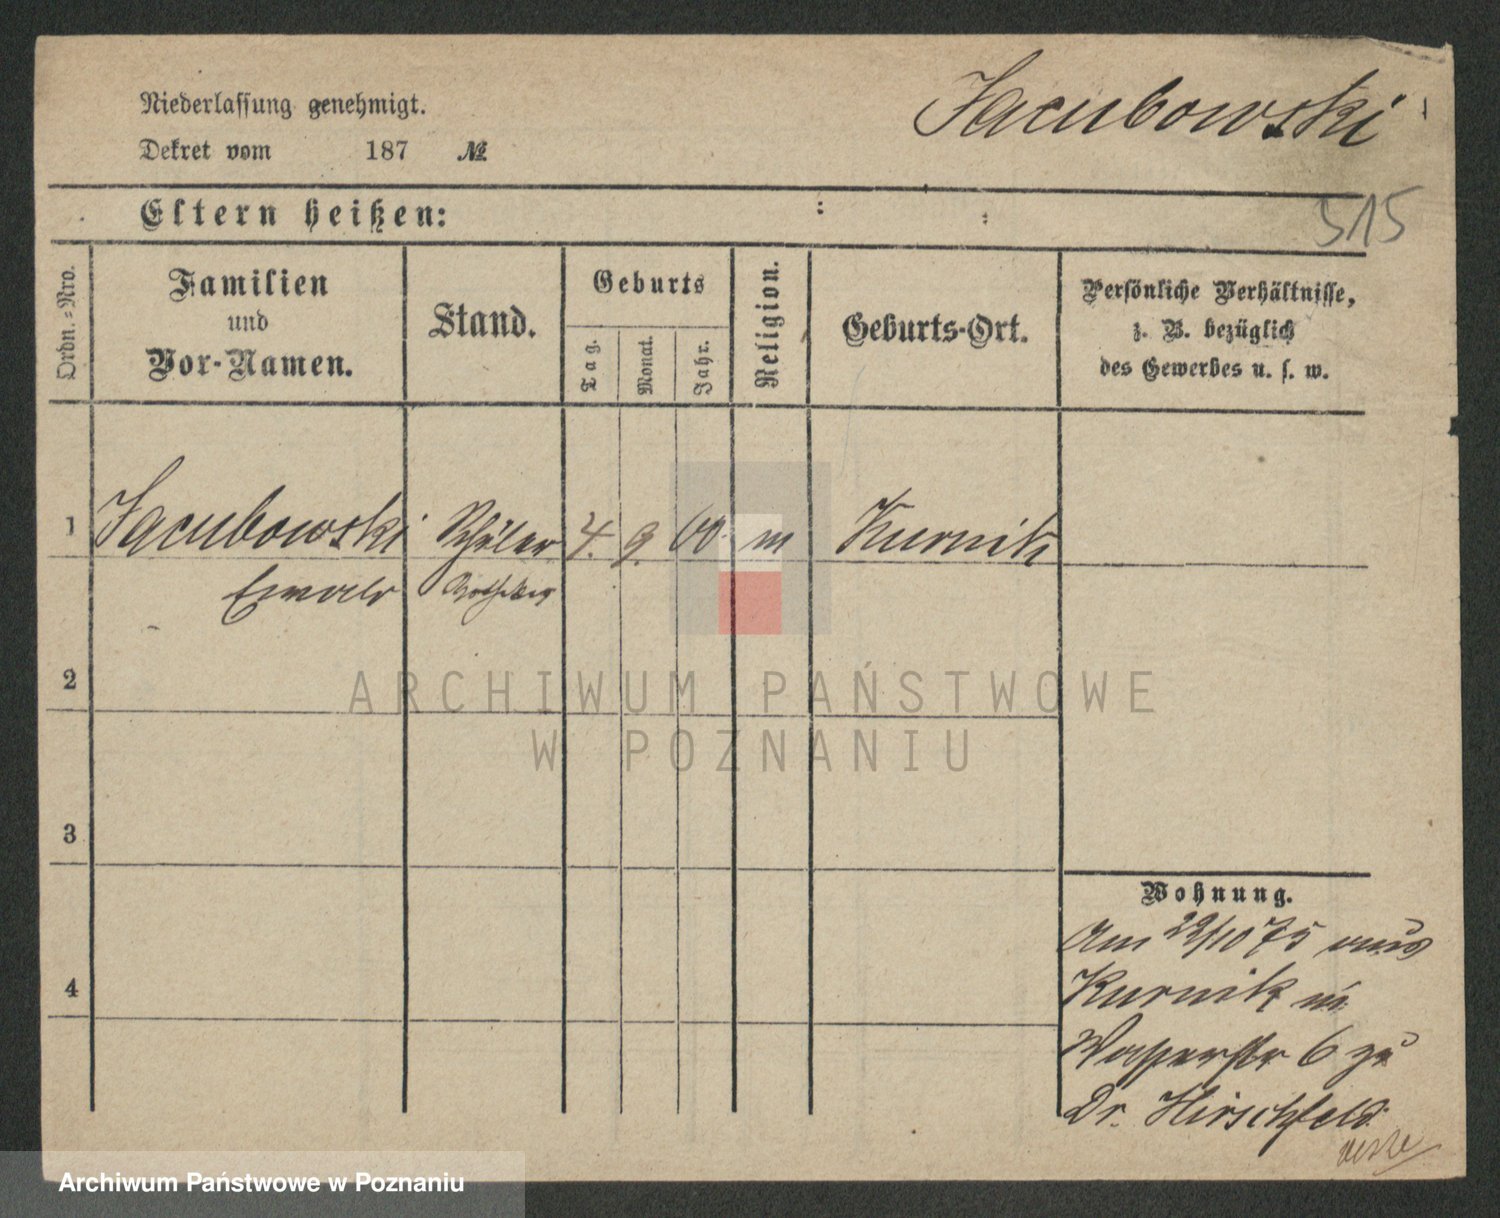 Jacubowski
Niederlassung genehmigt.
Dekret vom 187 №
515
Eltern heißen:
Ordn.-Nro.
Familien
und
Vor-Namen.
Stand.
Geburts
Tag.
Monat.
Jahr.
Religion.
Geburts-Ort.
Persönliche Verhältnisse,
z. B. bezüglich
des Gewerbes u. s. w.
1 Jacubowski Schüler 4. 9. 60 m Kurnik
Ewald
2
ARCHIWUM PAŃSTWOWE
W POZNANIU
3
4
Wohnung.
Am 22/10 75 aus
Kurnik in
Wasserstr 6 zu
Dr. Hirschfeld
Archiwum Państwowe w Poznaniu